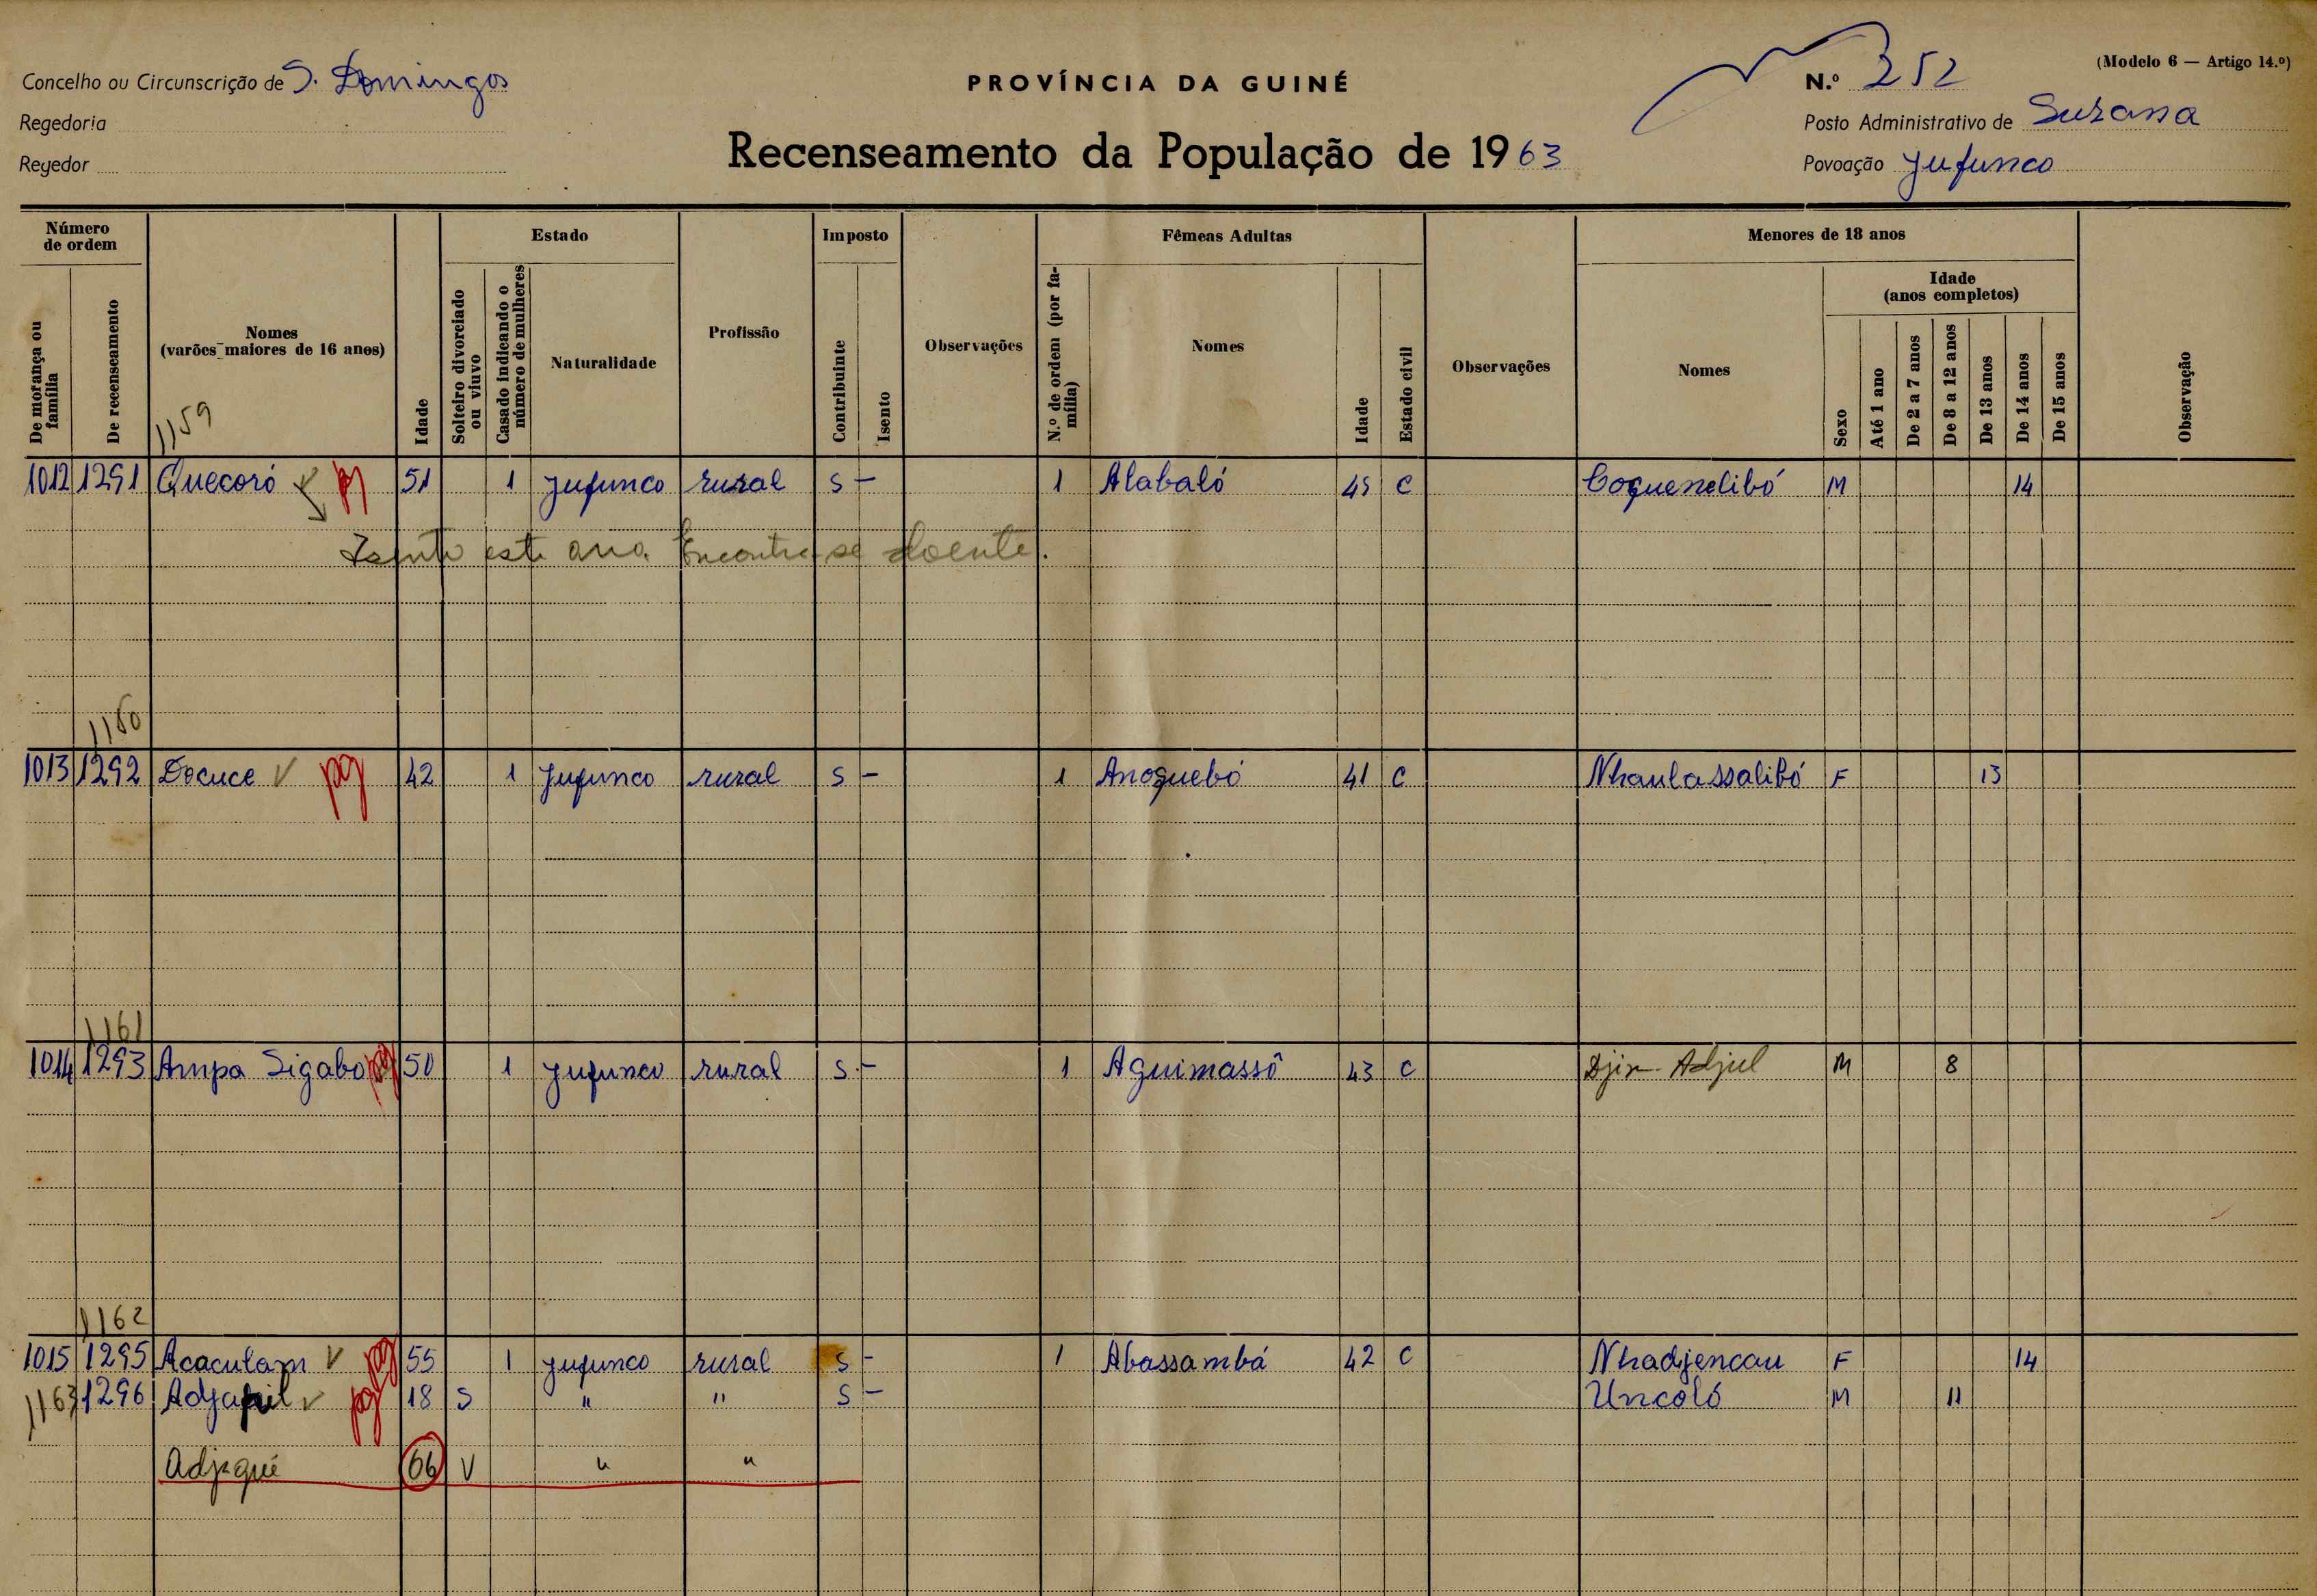 (Modelo 6 — Artigo 14.º)
Concelho ou Circunscrição de S. Domingos
PROVÍNCIA DA GUINÉ
N.º 252
Regedoria
Posto Administrativo de Suzana
Regedor
Recenseamento da População de 1963
Povoação Jufunco
Número de ordem
Estado
Imposto
Fêmeas Adultas
Menores de 18 anos
De morança ou família
De recenseamento
Nomes (varões maiores de 16 anos)
Idade
Solteiro divorciado ou viuvo
Casado indicando o número de mulheres
Naturalidade
Profissão
Contribuinte
Isento
Observações
N.º de ordem (por família)
Nomes
Idade
Estado civil
Observações
Nomes
Sexo
Idade (anos completos)
Até 1 ano
De 2 a 7 anos
De 8 a 12 anos
De 13 anos
De 14 anos
De 15 anos
Observação
1159
1012 1291 Quecoró pg 51 1 Jufunco rural S — 1 Alabaló 45 C Coquenelibó M 14
Isento este ano. Encontra-se doente.
1160
1013 1292 Docuce V pg 42 1 Jufunco rural S — 1 Anoquebó 41 C Nhaulassalibó F 13
1161
1014 1293 Ampa Sigabo pg 50 1 Jufunco rural S — 1 Aguimassô 43 C Djin-Adjul M 8
1162
1015 1295 Acaculam V pg 55 1 Jufunco rural S — 1 Abassambá 42 C Nhadjencau F 14
1163 1296 V pg 18 S " " S — Uncoló M 11
66 V " "